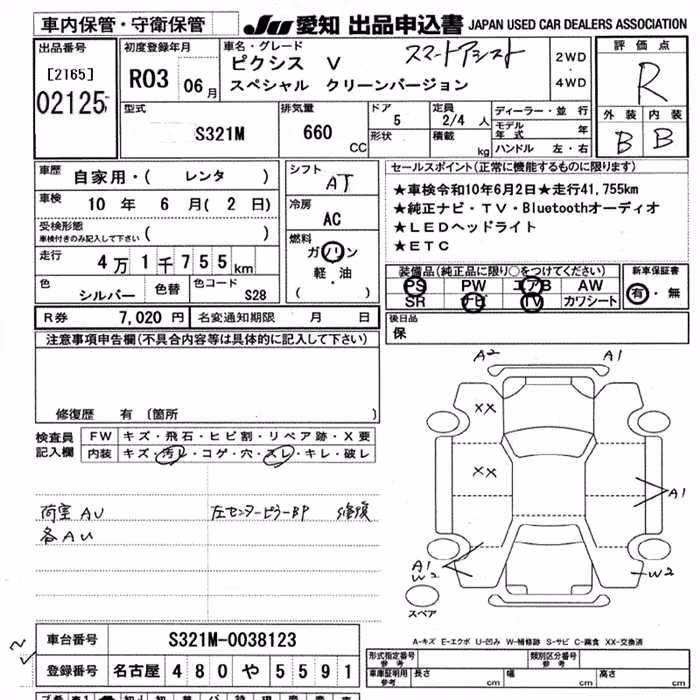 車内保管・守衛保管 JU 愛知 出品申込書 JAPAN USED CAR DEALERS ASSOCIATION
出品番号 [2165] 02125
初度登録年月 R03 06月
車名・グレード ピクシス V スマートアシスト
スペシャル クリーンバージョン
2WD・4WD
評価点 R
外装 B 内装 B
型式 S321M
排気量 660 CC
ドア 5
形状
定員 2/4 人
積載 kg
ディーラー・並行
モデル年式 年
ハンドル 左・右
車歴 自家用・( レンタ )
車検 10年 6月( 2日)
受検形態 車検付きのみ記入して下さい ( )
走行 4万1千755km
色 シルバー 色替 色コード S28
シフト AT
冷房 AC
燃料 ガソリン
軽・油
( )
セールスポイント(正常に機能するものに限ります)
★車検令和10年6月2日★走行41,755km
★純正ナビ・TV・Bluetoothオーディオ
★LEDヘッドライト
★ETC
装備品(純正品に限り○をつけてください)
PS PW エアB AW
SR ナビ TV カワシート
新車保証書 有・無
R券 7,020円 名変通知期限 月 日
後日品
保
注意事項申告欄(不具合内容等は具体的に記入して下さい)
修復歴 有 〔箇所 〕
検査員記入欄 FW キズ・飛石・ヒビ割・リペア跡・X要
内装 キズ・汚レ・コゲ・穴・スレ・キレ・破レ
荷室AU 左センターピラーBP 修復
各AU
A2 A1
XX
XX
A1
A1
W2
W2
スペア
A-キズ E-エクボ U-凹み W-補修跡 S-サビ C-腐食 XX-交換済
車台番号 S321M-0038123
登録番号 名古屋 480 や 5591
形式指定番号 参考 類別区分番号 参考
車庫証明用 参考 長さ cm 幅 cm 高さ cm